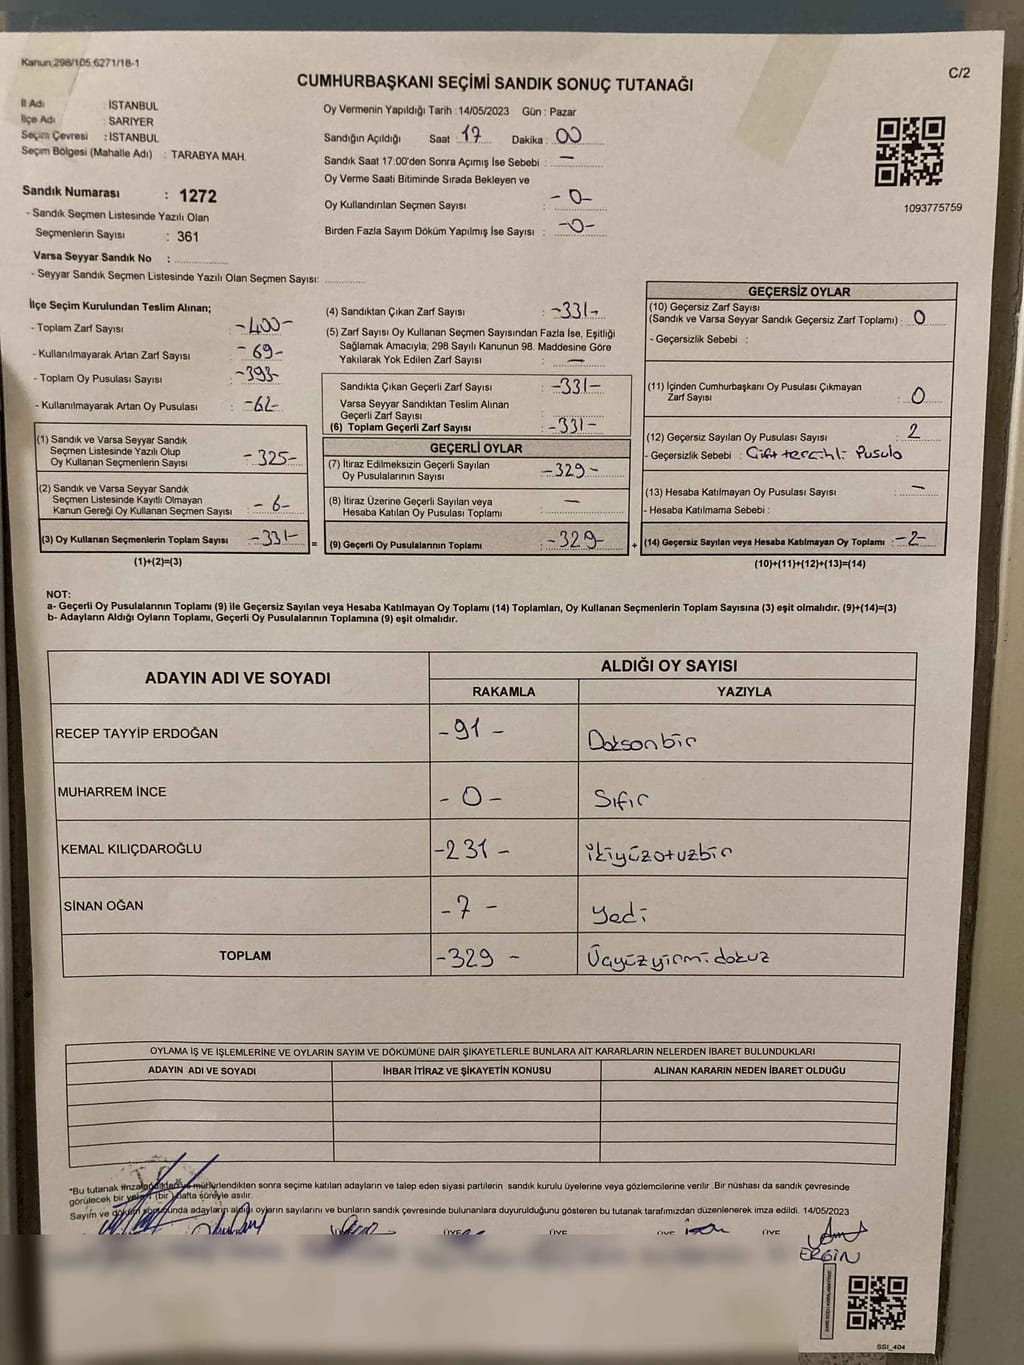 Kanun,298/105,6271/18-1
C/2
CUMHURBAŞKANI SEÇİMİ SANDIK SONUÇ TUTANAĞI
İl Adı : İSTANBUL
İlçe Adı : SARIYER
Seçim Çevresi : İSTANBUL
Seçim Bölgesi (Mahalle Adı) : TARABYA MAH.
Sandık Numarası : 1272
- Sandık Seçmen Listesinde Yazılı Olan
Seçmenlerin Sayısı : 361
Varsa Seyyar Sandık No :
- Seyyar Sandık Seçmen Listesinde Yazılı Olan Seçmen Sayısı:
Oy Vermenin Yapıldığı Tarih : 14/05/2023 Gün : Pazar
Sandığın Açıldığı Saat : 17 Dakika : 00
Sandık Saat 17:00'den Sonra Açımış İse Sebebi : —
Oy Verme Saati Bitiminde Sırada Bekleyen ve
Oy Kullandırılan Seçmen Sayısı : -0-
Birden Fazla Sayım Döküm Yapılmış İse Sayısı : -0-
1093775759
İlçe Seçim Kurulundan Teslim Alınan;
- Toplam Zarf Sayısı : -400-
- Kullanılmayarak Artan Zarf Sayısı : -69-
- Toplam Oy Pusulası Sayısı : -393-
- Kullanılmayarak Artan Oy Pusulası : -62-
(1) Sandık ve Varsa Seyyar Sandık
Seçmen Listesinde Yazılı Olup
Oy Kullanan Seçmenlerin Sayısı : -325-
(2) Sandık ve Varsa Seyyar Sandık
Seçmen Listesinde Kayıtlı Olmayan
Kanun Gereği Oy Kullanan Seçmen Sayısı : -6-
(3) Oy Kullanan Seçmenlerin Toplam Sayısı : -331-
(1)+(2)=(3)
(4) Sandıktan Çıkan Zarf Sayısı : -331-
(5) Zarf Sayısı Oy Kullanan Seçmen Sayısından Fazla İse, Eşitliği
Sağlamak Amacıyla, 298 Sayılı Kanunun 98. Maddesine Göre
Yakılarak Yok Edilen Zarf Sayısı : —
Sandıkta Çıkan Geçerli Zarf Sayısı : -331-
Varsa Seyyar Sandıktan Teslim Alınan
Geçerli Zarf Sayısı :
(6) Toplam Geçerli Zarf Sayısı : -331-
GEÇERLİ OYLAR
(7) İtiraz Edilmeksizin Geçerli Sayılan
Oy Pusulalarının Sayısı : -329-
(8) İtiraz Üzerine Geçerli Sayılan veya
Hesaba Katılan Oy Pusulası Toplamı : —
= (9) Geçerli Oy Pusulalarının Toplamı : -329-
GEÇERSİZ OYLAR
(10) Geçersiz Zarf Sayısı
(Sandık ve Varsa Seyyar Sandık Geçersiz Zarf Toplamı) : 0
- Geçersizlik Sebebi :
(11) İçinden Cumhurbaşkanı Oy Pusulası Çıkmayan
Zarf Sayısı : 0
(12) Geçersiz Sayılan Oy Pusulası Sayısı : 2
- Geçersizlik Sebebi : Çift tercihli Pusula
(13) Hesaba Katılmayan Oy Pusulası Sayısı : —
- Hesaba Katılmama Sebebi :
+ (14) Geçersiz Sayılan veya Hesaba Katılmayan Oy Toplamı : -2-
(10)+(11)+(12)+(13)=(14)
NOT:
a- Geçerli Oy Pusulalarının Toplamı (9) ile Geçersiz Sayılan veya Hesaba Katılmayan Oy Toplamı (14) Toplamları, Oy Kullanan Seçmenlerin Toplam Sayısına (3) eşit olmalıdır. (9)+(14)=(3)
b- Adayların Aldığı Oyların Toplamı, Geçerli Oy Pusulalarının Toplamına (9) eşit olmalıdır.
ADAYIN ADI VE SOYADI ALDIĞI OY SAYISI
RAKAMLA YAZIYLA
RECEP TAYYİP ERDOĞAN -91- Doksanbir
MUHARREM İNCE -0- Sıfır
KEMAL KILIÇDAROĞLU -231- ikiyüzotuzbir
SİNAN OĞAN -7- yedi
TOPLAM -329- Üçyüzyirmidokuz
OYLAMA İŞ VE İŞLEMLERİNE VE OYLARIN SAYIM VE DÖKÜMÜNE DAİR ŞİKAYETLERLE BUNLARA AİT KARARLARIN NELERDEN İBARET BULUNDUKLARI
ADAYIN ADI VE SOYADI İHBAR İTİRAZ VE ŞİKAYETİN KONUSU ALINAN KARARIN NEDEN İBARET OLDUĞU
*Bu tutanak mühürlendikten sonra seçime katılan adayların ve talep eden siyasi partilerin sandık kurulu üyelerine veya gözlemcilerine verilir .Bir nüshası da sandık çevresinde
görülecek bir (bir) hafta süreyle asılır.
Sayım ve adayların aldığı oyların sayılarını ve bunların sandık çevresinde bulunanlara duyurulduğunu gösteren bu tutanak tarafımızdan düzenlenerek imza edildi. 14/05/2023
ÜYE ÜYE ÜYE ÜYE
ERGİN
SSI_404